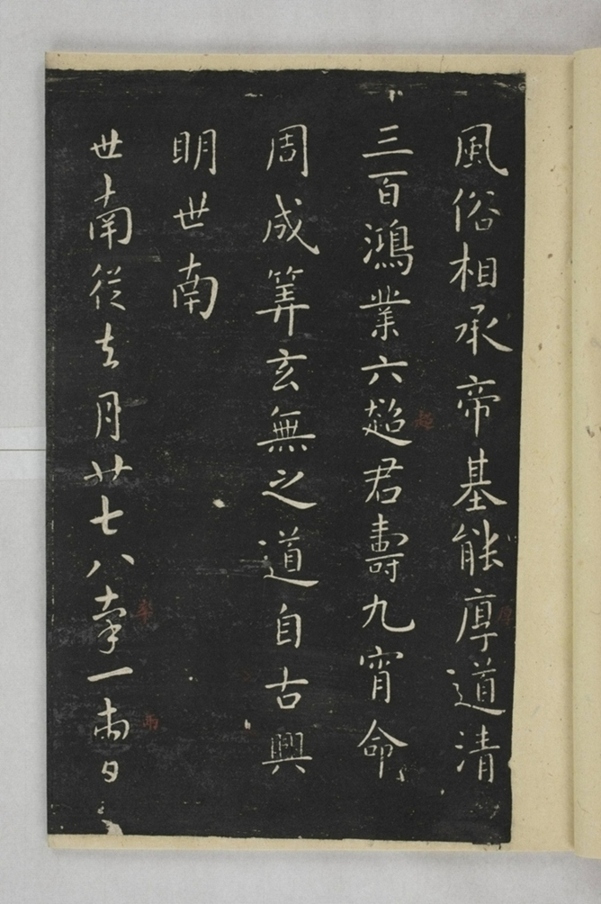 風俗相承帝基能厚道清
三百鴻業六超君壽九霄命
周成筭玄無之道自古興
明世南
世南從去月廿七八率一兩日